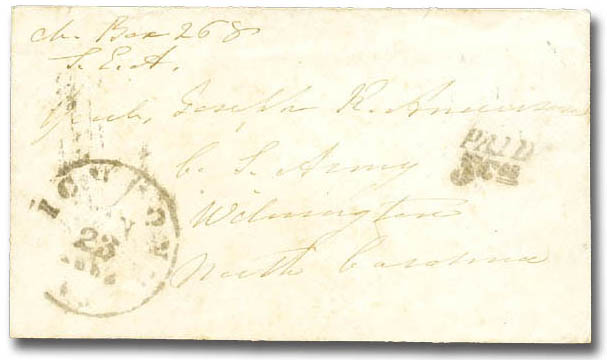 ch. Box 268
S. E. A.
Genl. Joseph R. Anderson
C. S. Army
Wilmington
North Carolina
PAID
5 cts
23